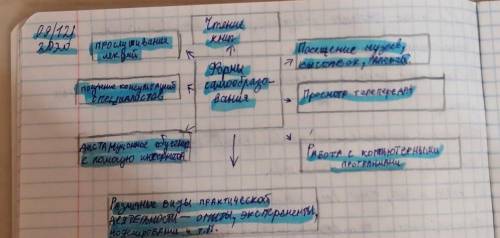 09/12/
2020
Чтение
книг
Прослушивание
лекций
Посещение музеев,
выставок,
Формы
самообразо-
вания
получение консультаций
специалистов
Просмотр телепередач
дистанционное обучение
с помощью интернета
Работа с компьютерными
программами
Различные виды практической
деятельности — опыты, эксперименты,
моделирование и т.п.